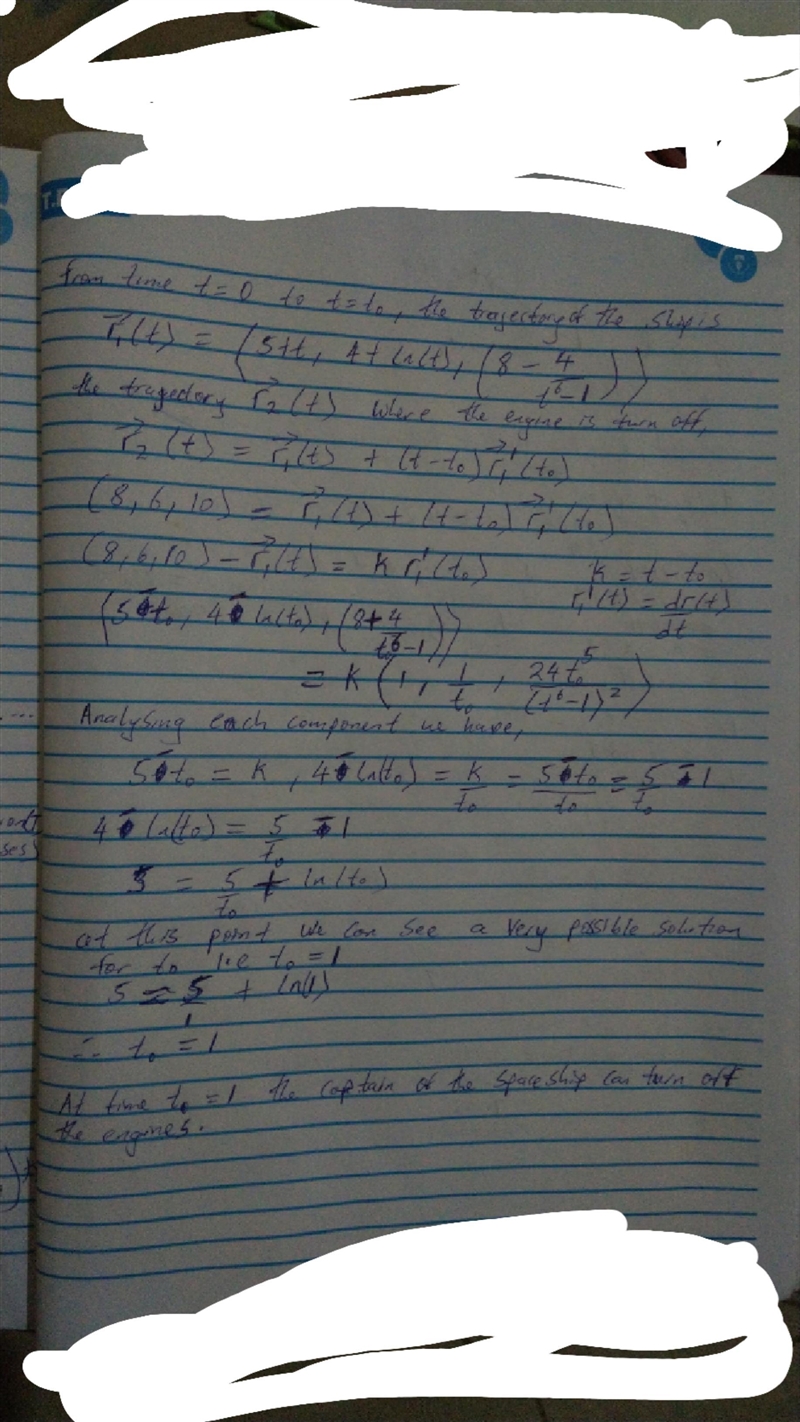 T.
From time t = 0 to t = t₀, the trajectory of the ship is
r⃗₁(t) = (5+t, 4+ ln(t), (8 - 4/(t⁶-1)))
the tragectory r⃗₂(t) where the engine is turn off,
r⃗₂(t) = r⃗₁(t) + (t-t₀) r⃗₁'(t₀)
(8, 6, 10) = r⃗₁(t) + (t-t₀) r⃗₁'(t₀)
(8, 6, 10) - r⃗₁(t) = K r₁'(t₀)
K = t - t₀
r₁'(t) = dr(t)/dt
(5-t₀, 4- ln(t₀), (8+ 4/(t₀⁶-1)))
= K (1, 1/t₀, 24t₀⁵/(t⁶-1)²)
Analysing each component we have,
5-t₀ = K , 4- ln(t₀) = K/t₀ = 5-t₀/t₀ = 5/t₀ -1
4- ln(t₀) = 5/t₀ -1
5 = 5/t₀ + ln(t₀)
at this point we can see a very possible solution
for t₀ i.e t₀ = 1
5 = 5/1 + ln(1)
∴ t₀ = 1
At time t₀ = 1 the captain of the spaceship can turn off
the engines.